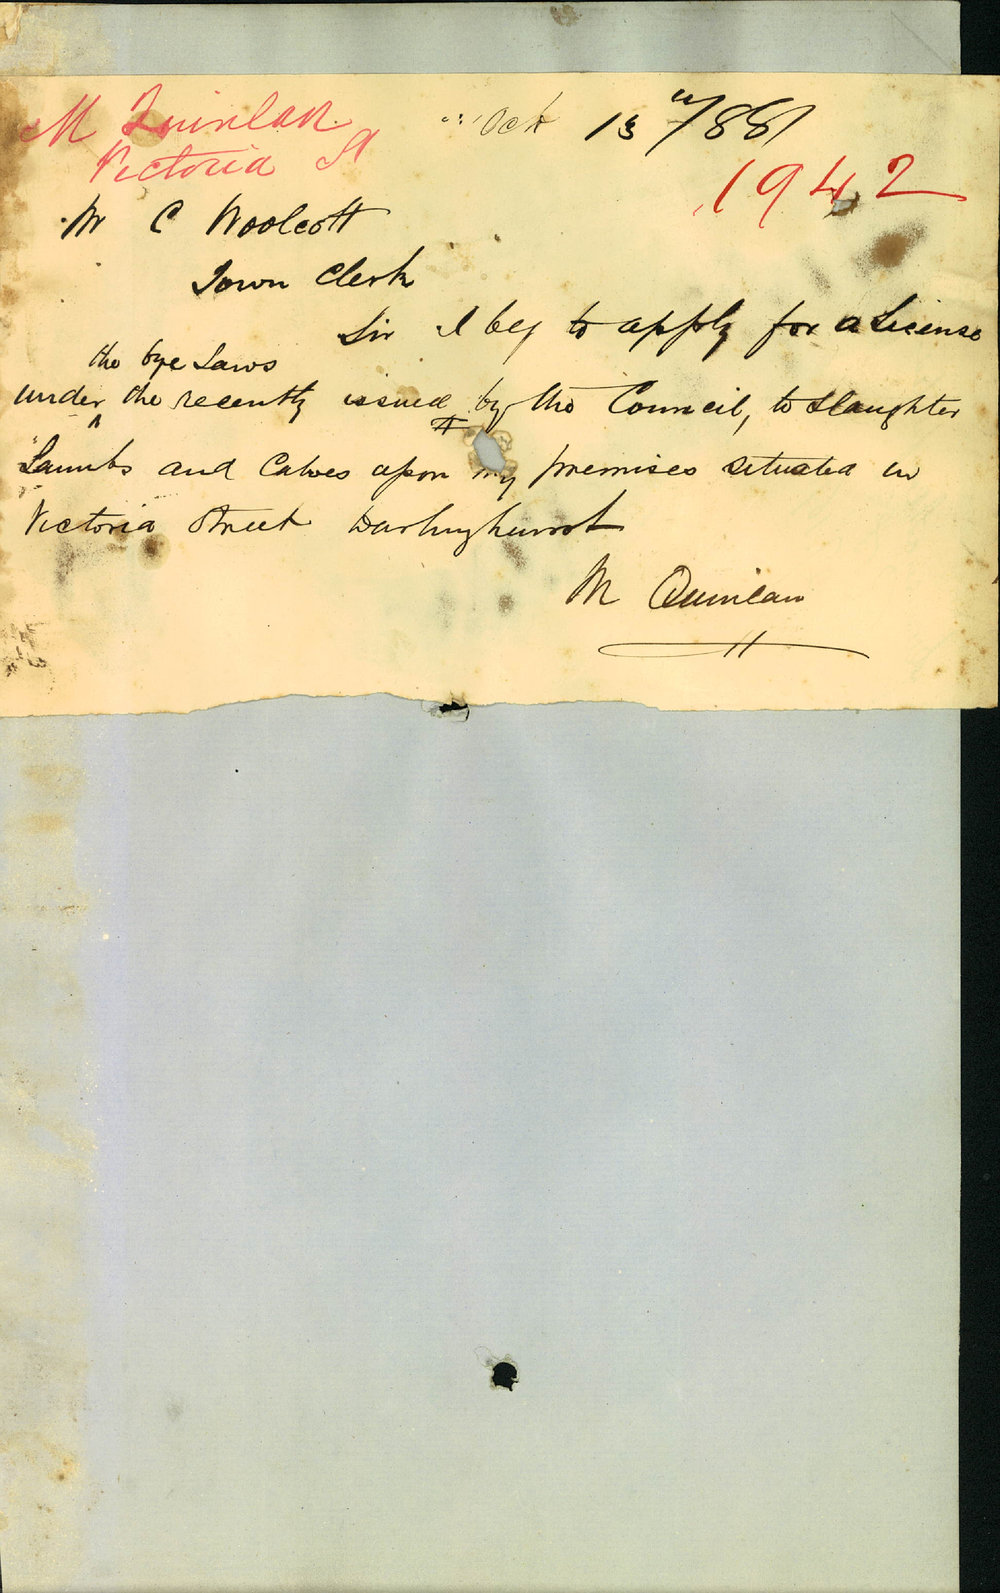 M Quinlan
Victoria St
Oct 13th/881
1942
Mr C Woolcott
Town Clerk
Sir I beg to apply for a License
the bye Laws
under the recently issued by the Council, to slaughter
Lambs and Calves upon my premises situated in
Victoria Street Darlinghurst
M Quinlan